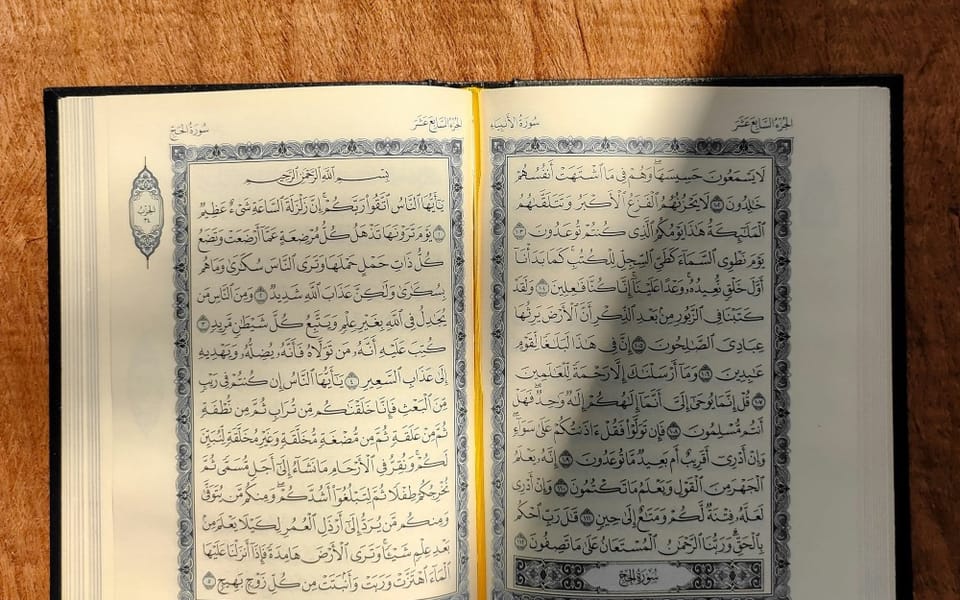 الجُزْءُ السَّابِعَ عَشَرَ سُورَةُ الأَنبِيَاءِ
لَا يَسْمَعُونَ حَسِيسَهَا ۖ وَهُمْ فِي مَا ٱشْتَهَتْ أَنفُسُهُمْ
خَٰلِدُونَ ١٠٢ لَا يَحْزُنُهُمُ ٱلْفَزَعُ ٱلْأَكْبَرُ وَتَتَلَقَّىٰهُمُ
ٱلْمَلَٰٓئِكَةُ هَٰذَا يَوْمُكُمُ ٱلَّذِي كُنتُمْ تُوعَدُونَ ١٠٣
يَوْمَ نَطْوِي ٱلسَّمَآءَ كَطَيِّ ٱلسِّجِلِّ لِلْكُتُبِ ۚ كَمَا بَدَأْنَآ
أَوَّلَ خَلْقٍ نُّعِيدُهُۥ ۚ وَعْدًا عَلَيْنَآ ۚ إِنَّا كُنَّا فَٰعِلِينَ ١٠٤ وَلَقَدْ
كَتَبْنَا فِي ٱلزَّبُورِ مِنۢ بَعْدِ ٱلذِّكْرِ أَنَّ ٱلْأَرْضَ يَرِثُهَا
عِبَادِيَ ٱلصَّٰلِحُونَ ١٠٥ إِنَّ فِي هَٰذَا لَبَلَٰغًا لِّقَوْمٍ
عَٰبِدِينَ ١٠٦ وَمَآ أَرْسَلْنَٰكَ إِلَّا رَحْمَةً لِّلْعَٰلَمِينَ
١٠٧ قُلْ إِنَّمَا يُوحَىٰٓ إِلَيَّ أَنَّمَآ إِلَٰهُكُمْ إِلَٰهٌ وَٰحِدٌ ۖ فَهَلْ
أَنتُم مُّسْلِمُونَ ١٠٨ فَإِن تَوَلَّوْا۟ فَقُلْ ءَاذَنتُكُمْ عَلَىٰ سَوَآءٍ ۖ
وَإِنْ أَدْرِيٓ أَقَرِيبٌ أَم بَعِيدٌ مَّا تُوعَدُونَ ١٠٩ إِنَّهُۥ يَعْلَمُ
ٱلْجَهْرَ مِنَ ٱلْقَوْلِ وَيَعْلَمُ مَا تَكْتُمُونَ ١١٠ وَإِنْ أَدْرِي
لَعَلَّهُۥ فِتْنَةٌ لَّكُمْ وَمَتَٰعٌ إِلَىٰ حِينٍ ١١١ قَٰلَ رَبِّ ٱحْكُم
بِٱلْحَقِّ ۗ وَرَبُّنَا ٱلرَّحْمَٰنُ ٱلْمُسْتَعَانُ عَلَىٰ مَا تَصِفُونَ ١١٢
سُورَةُ الحَجِّ
الجُزْءُ السَّابِعَ عَشَرَ سُورَةُ الحَجِّ
بِسْمِ ٱللَّهِ ٱلرَّحْمَٰنِ ٱلرَّحِيمِ
يَٰٓأَيُّهَا ٱلنَّاسُ ٱتَّقُوا۟ رَبَّكُمْ ۚ إِنَّ زَلْزَلَةَ ٱلسَّاعَةِ شَيْءٌ عَظِيمٌ
١ يَوْمَ تَرَوْنَهَا تَذْهَلُ كُلُّ مُرْضِعَةٍ عَمَّآ أَرْضَعَتْ وَتَضَعُ
كُلُّ ذَاتِ حَمْلٍ حَمْلَهَا وَتَرَى ٱلنَّاسَ سُكَٰرَىٰ وَمَا هُم
بِسُكَٰرَىٰ وَلَٰكِنَّ عَذَابَ ٱللَّهِ شَدِيدٌ ٢ وَمِنَ ٱلنَّاسِ مَن
يُجَٰدِلُ فِي ٱللَّهِ بِغَيْرِ عِلْمٍ وَيَتَّبِعُ كُلَّ شَيْطَٰنٍ مَّرِيدٍ ٣
كُتِبَ عَلَيْهِ أَنَّهُۥ مَن تَوَلَّاهُ فَأَنَّهُۥ يُضِلُّهُۥ وَيَهْدِيهِ
إِلَىٰ عَذَابِ ٱلسَّعِيرِ ٤ يَٰٓأَيُّهَا ٱلنَّاسُ إِن كُنتُمْ فِي رَيْبٍ
مِّنَ ٱلْبَعْثِ فَإِنَّا خَلَقْنَٰكُم مِّن تُرَابٍ ثُمَّ مِن نُّطْفَةٍ
ثُمَّ مِنْ عَلَقَةٍ ثُمَّ مِن مُّضْغَةٍ مُّخَلَّقَةٍ وَغَيْرِ مُخَلَّقَةٍ لِّنُبَيِّنَ
لَكُمْ ۚ وَنُقِرُّ فِي ٱلْأَرْحَامِ مَا نَشَآءُ إِلَىٰٓ أَجَلٍ مُّسَمًّى ثُمَّ
نُخْرِجُكُمْ طِفْلًا ثُمَّ لِتَبْلُغُوٓا۟ أَشُدَّكُمْ ۖ وَمِنكُم مَّن يُتَوَفَّىٰ
وَمِنكُم مَّن يُرَدُّ إِلَىٰٓ أَرْذَلِ ٱلْعُمُرِ لِكَيْلَا يَعْلَمَ مِنۢ
بَعْدِ عِلْمٍ شَيْـًٔا ۚ وَتَرَى ٱلْأَرْضَ هَامِدَةً فَإِذَآ أَنزَلْنَا عَلَيْهَا
ٱلْمَآءَ ٱهْتَزَّتْ وَرَبَتْ وَأَنۢبَتَتْ مِن كُلِّ زَوْجٍۭ بَهِيجٍ ٥
الحِزْبُ
٣٤